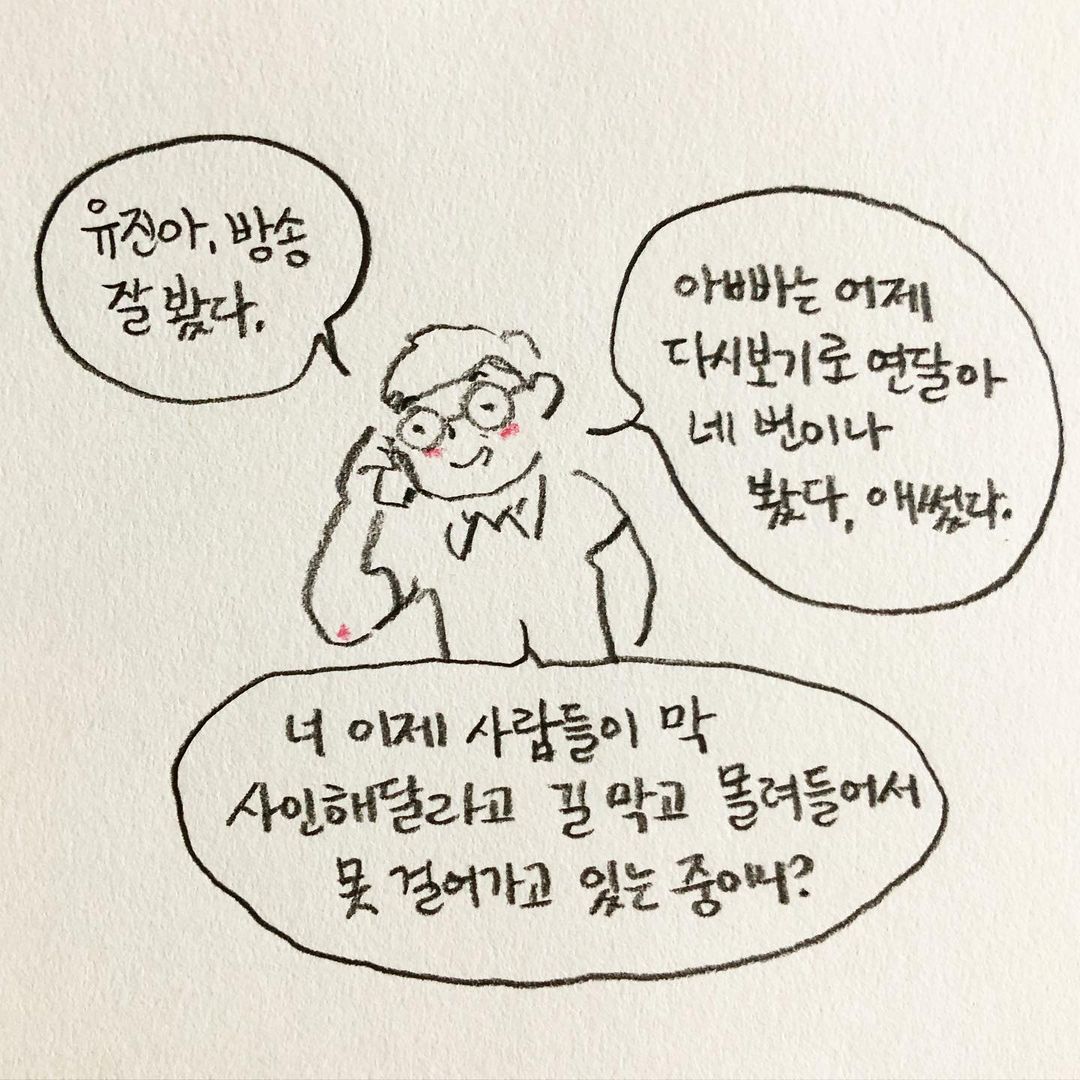 유진아, 방송
잘 봤다.
아빠는 어제
다시보기로 연달아
네 번이나
봤다, 애썼다.
너 이제 사람들이 막
사인해달라고 길 막고 몰려들어서
못 걸어가고 있는 중이니?